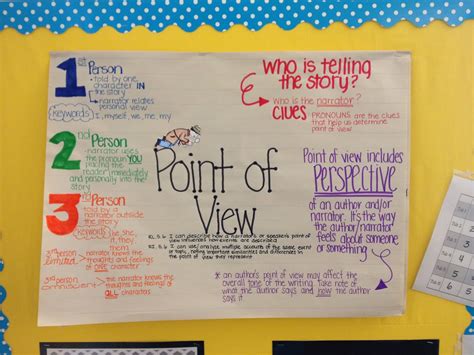 1st
Person
• told by one
character IN
the story
• narrator relates
personal view
Keywords
I, myself, we, me, my
2nd
Person
-narrator uses
the pronoun YOU
placing the
reader immediately
and personally into the
story
3rd
Person
told by a
narrator outside
the story
Keywords
she, he,
it, they
them
3rd person
limited
the narrator knows the
thoughts and feelings
of ONE character
3rd person
omniscient
the narrator knows the
thoughts and feelings of
ALL characters
Point of
View
RL 5.6 I can describe how a narrator's or speaker's point of
view influences how events are described
RI. 5.6 I can analyze multiple accounts of the same event
or topic, noting important similarities and differences in
the point of view they represent
Who is telling
the story?
Who is the narrator?
CLUES
PRONOUNS are the clues
that help us determine
point of view
Point of view includes
PERSPECTIVE
of an author and/or
narrator. It's the way
the author/narrator
feels about someone
or something
* an author's point of view may affect the
overall tone of the writing. Take note of
what the author says and how the author
says it.